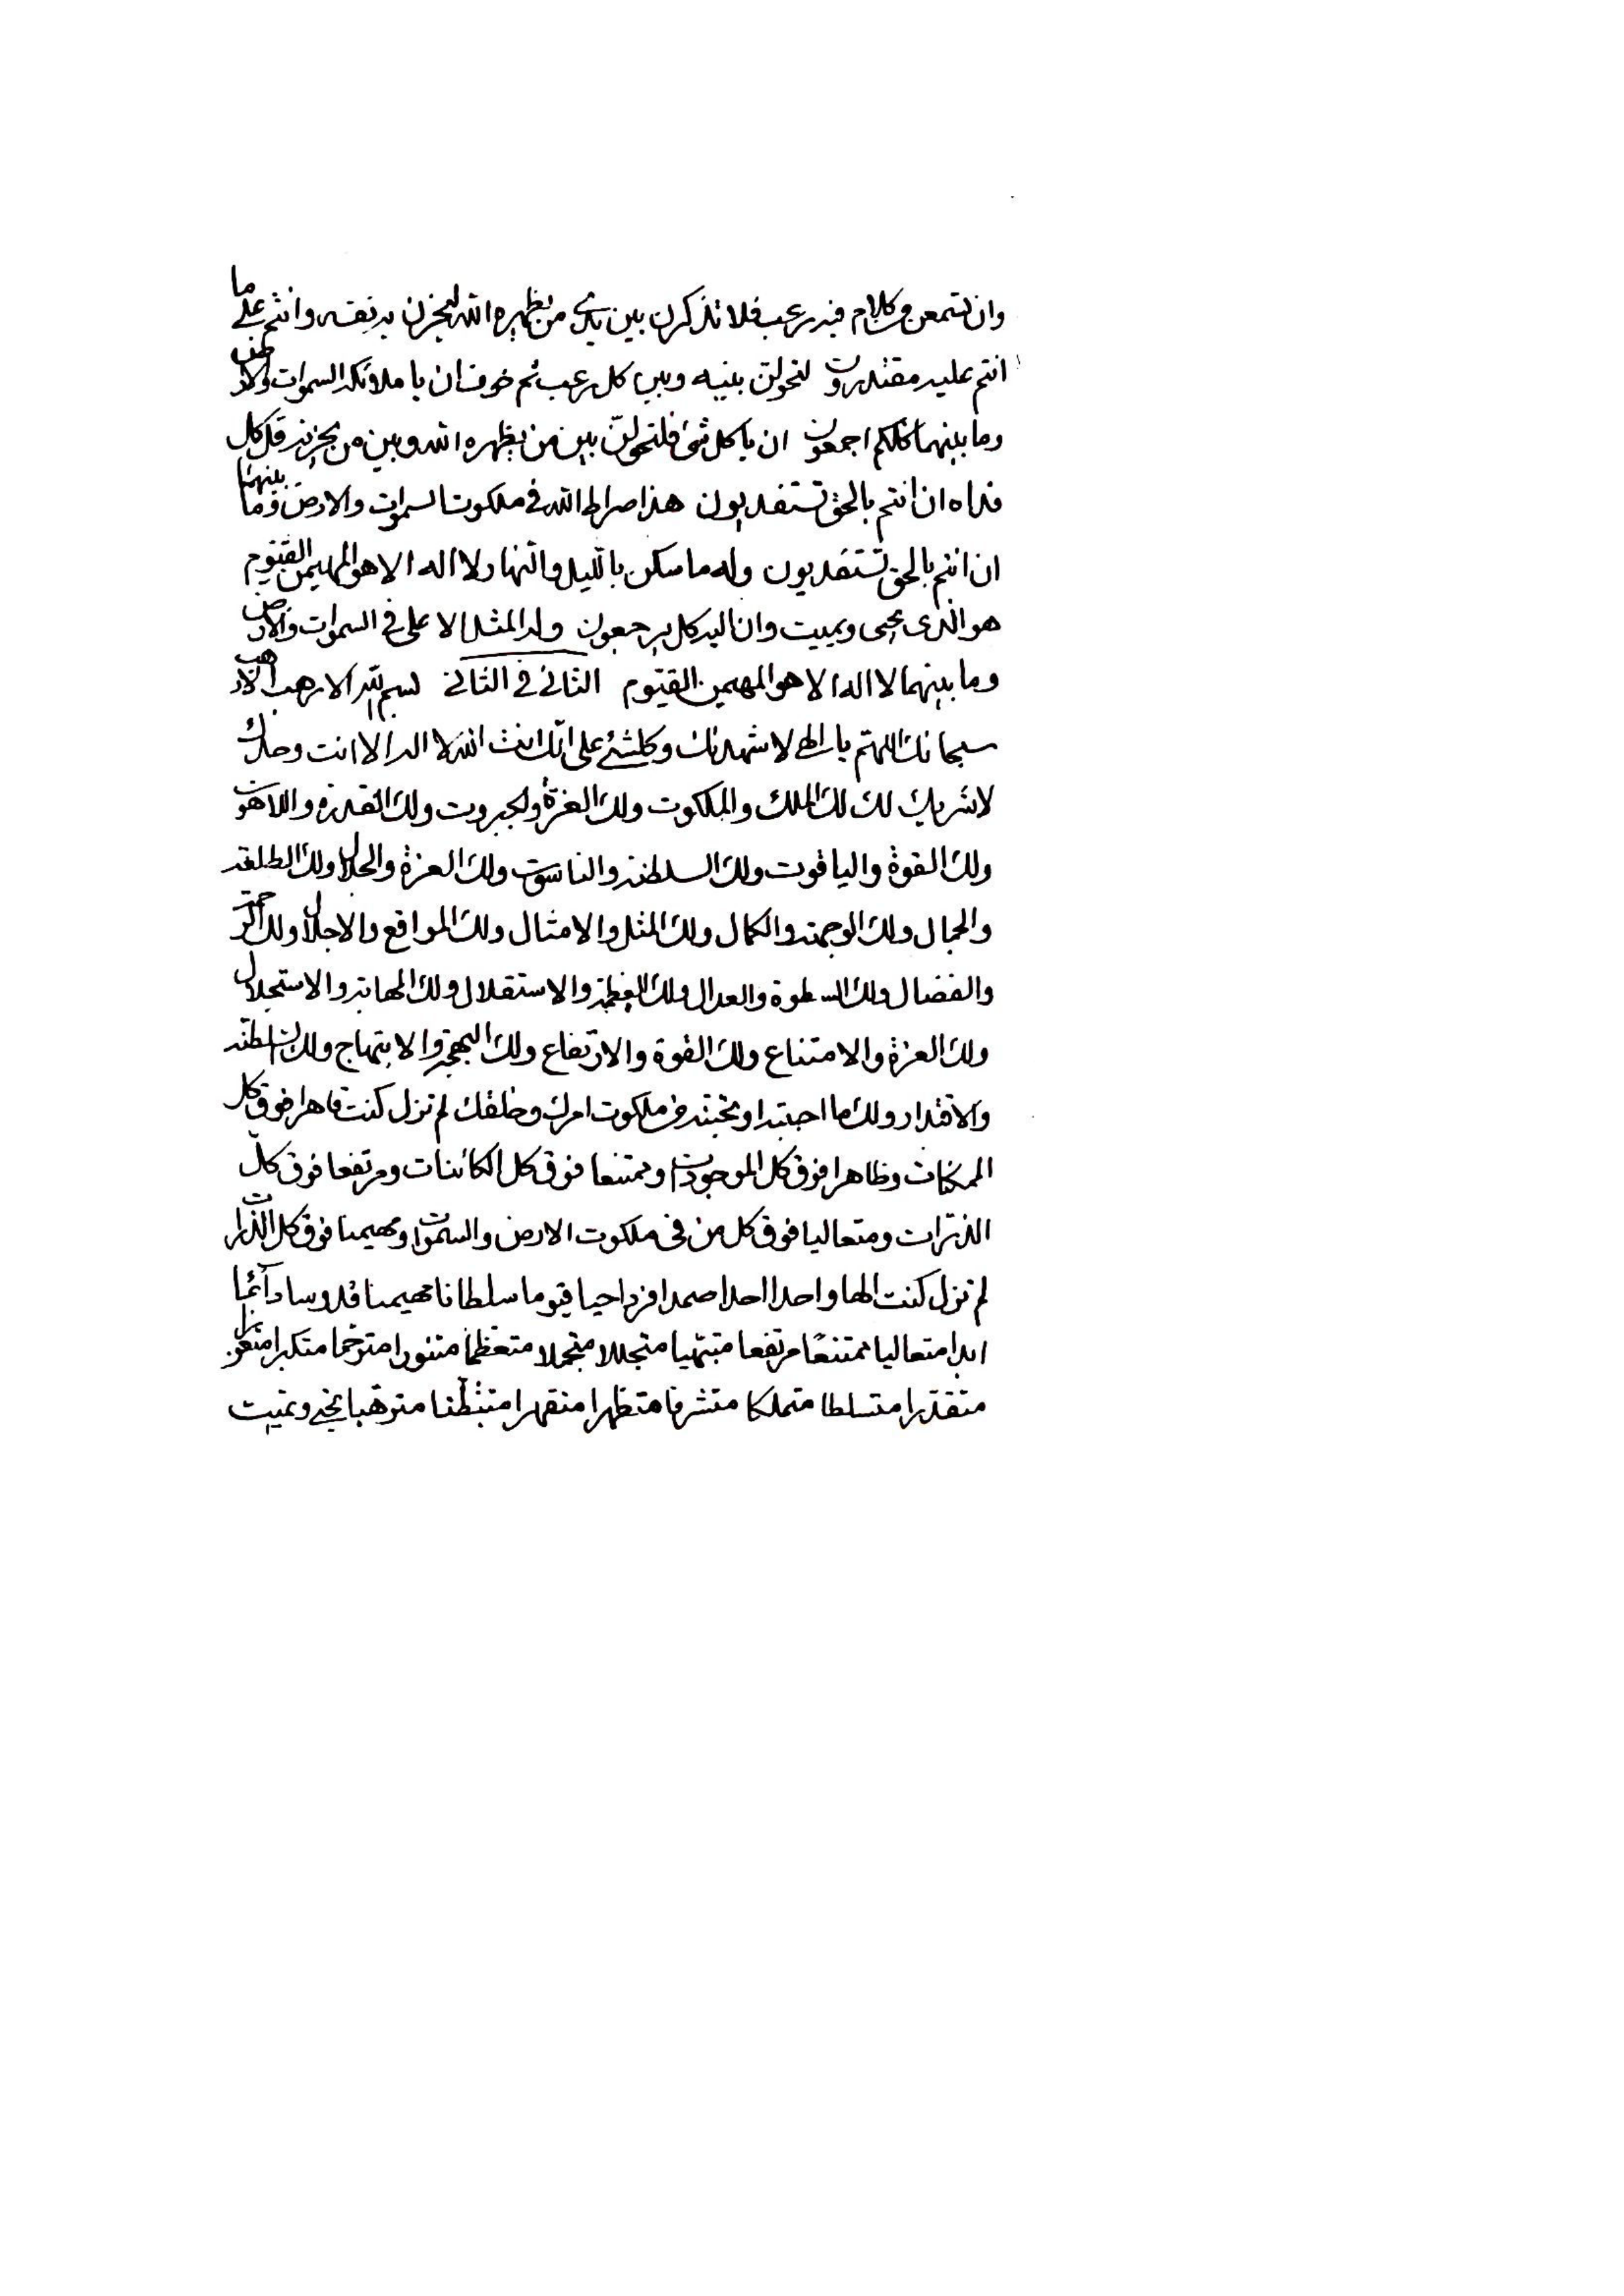 وان تستمعن من كلام فيه رعب فلا تذكرن بين يدي من يظهره الله ليحزن به نفسه وانتم على ما
انتم عليه مقتدرون لتحولن بينه وبين كل رعب ثم خوف ان يا ملائكة السموات والارض
وما بينهما كلكم اجمعون ان يا كل شئ فلتحولن بين من يظهره الله وبين من يحزنه قل كل
فداه ان انتم بالحق تستفديون هذا صراط الله في ملكوت السموات والارض وما بينهما
ان انتم بالحق تستفديون وله ما سكن بالليل والنهار لا اله الا هو المهيمن القيوم
هو الذى يحيى ويميت وان اليه كل يرجعون وله المثل الاعلى في السموات والارض
وما بينهما لا اله الا هو المهيمن القيوم الثانى في الثانى بسم الله الارهب الارهب
سبحانك اللهم يا الهى لاشهدنك وكلشئ على انك انت الله لا اله الا انت وحدك
لا شريك لك لك الملك والملكوت ولك العزة والجبروت ولك القدرة واللاهوت
ولك القوة والياقوت ولك السلطنة والناسوت ولك العزة والجلال ولك الطلعة
والجمال ولك الوجهة والكمال ولك المثل والامثال ولك المواقع والاجلال ولك الرحمة
والفضال ولك السطوة والعدال ولك العظمة والاستقلال ولك المهابة والاستجلال
ولك العزة والامتناع ولك القوة والارتفاع ولك البهجة والابتهاج ولك السلطنة
والاقتدار ولك ما احببته او تحببنه من ملكوت امرك وخلقك لم تزل كنت قاهرا فوق كل
الممكنات وظاهرا فوق كل الموجودات وممتنعا فوق كل الكائنات ومرتفعا فوق كل
الذرات ومتعاليا فوق كل من فى ملكوت الارض والسموات ومهيمنا فوق كل الذرات
لم تزل كنت الها واحدا احدا صمدا فردا حيا قيوما سلطانا مهيمنا قدوسا دآئما
ابدا متعاليا ممتنعا مرتفعا مبتهيا متجللا متجملا متعظما متنورا مترحما متكبرا متعززا
متقدرا متسلطا متملكا متشرفا متظهرا متقهرا متبطنا مترهبا تحيي وتميت